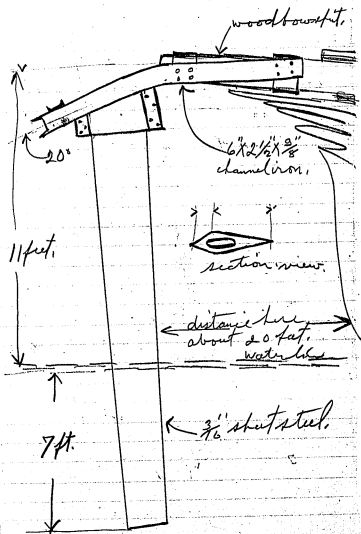 wood bowsprit.
20°
6"X2½"X⅜"
channel iron.
11 feet.
section view.
distance here
about 20 feet.
water line
7 ft.
3/16" sheet steel.